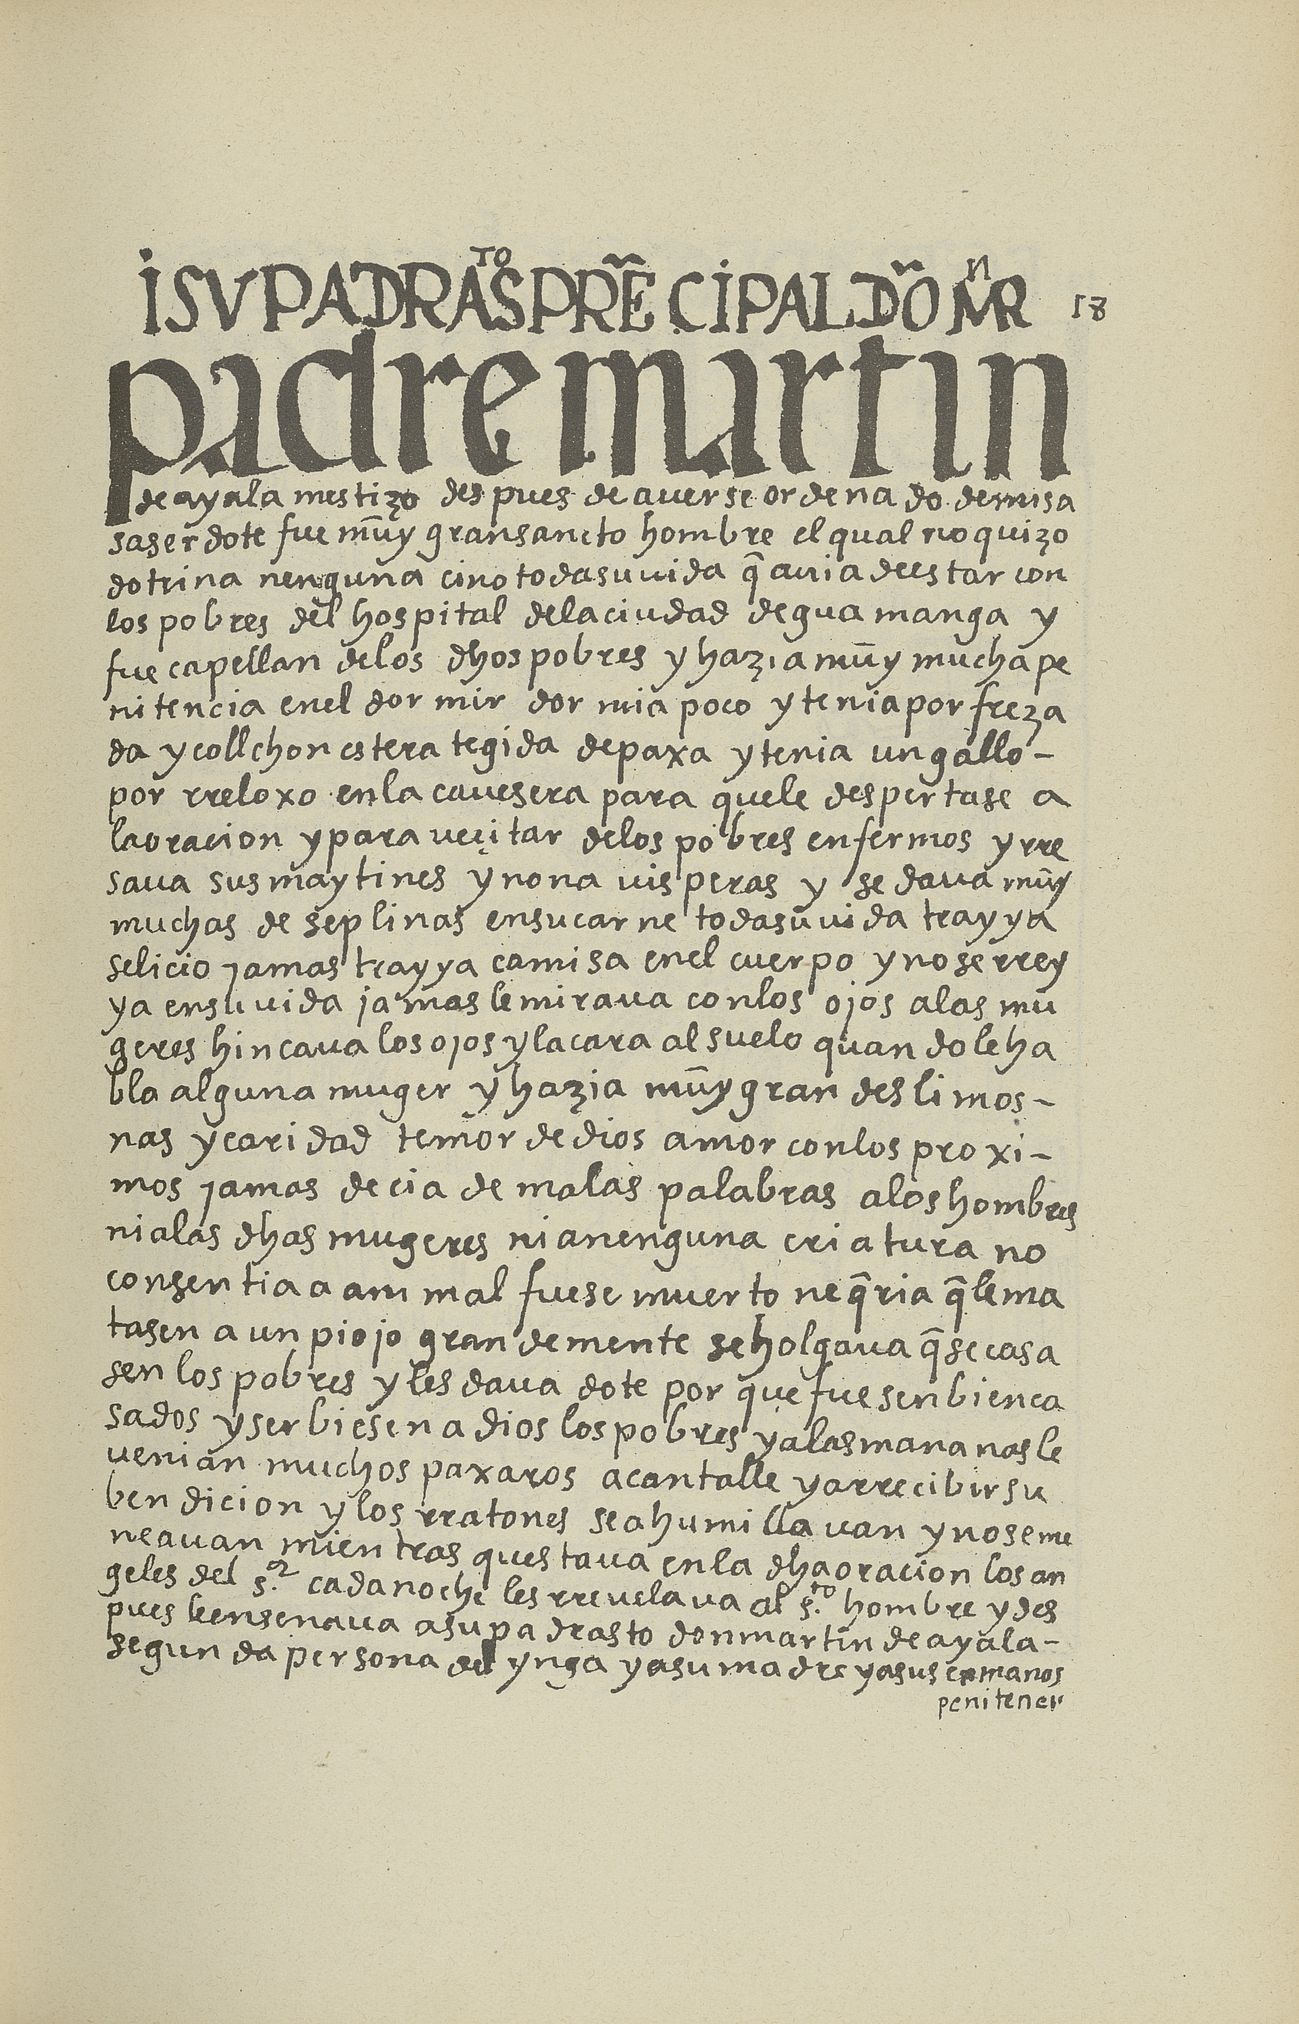 iSV PADRASTO PRE͂CiPAL DÕ MRN 18
padre martin
de ayala mestizo despues de auerse ordenado de misa
saserdote fue mũy gran sancto hombre el qual no quizo
dotrina nenguna cino toda su uida q̃ auia de estar con
los pobres del hospital de la ciudad de guamanga y
fue capellan de los dhos pobres y hazia mũy mucha pe
nitencia en el dormir dormia poco y tenia por freza
da y collchon estera tegida de paxa y tenia un gallo-
por rreloxo en la cauesera para que le despertase a
la oracion y para uecitar de los pobres enfermos y rre
saua sus maytines y nona uisperas y se daua mũy
muchas deseplinas en su carne toda su uida trayya
selicio jamas trayya camisa en el cuerpo y no se rrey
ya en su uida jamas le miraua con los ojos a las mu
geres hincaua los ojos y la cara al suelo quando le ha
bla alguna muger y hazia mũy grandes limos-
nas y caridad temor de dios amor con los proxi-
mos jamas decia de malas palabras a los hombres
ni a las dhas mugeres ni a nenguna criatura no
consentia a animal fuese muerto ne q̃ria q̃ le ma
tasen a un piojo grandemente se holgaua q̃ se casa
sen los pobres y les daua dote por que fuesen bien ca
sados y serbiesen a dios los pobres y a las mananas le
uenian muchos paxaros a cantalle y a rrecibir su
bendicion y los rratones se ahumillauan y no se me
neauan mientras questaua en la dha oracion los an
geles del s.r cada noche les rreuelaua al s.to hombre y des
pues le ensenaua a su padrasto don martin de ayala-
segunda persona del ynga y a su madre y a sus ermanos
penitenci